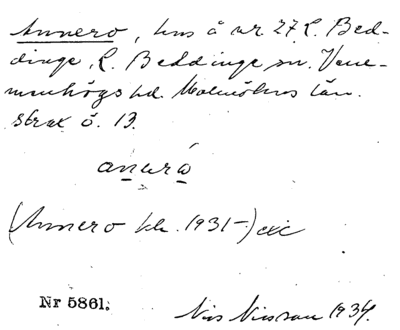 Annero, hus å nr 27 L. Bed-
dinge, L. Beddinge sn. Vem-
menhögs hd. Malmöhus län.
strax ö. 13.
anerò
(Annero kk. 1931-) exc
Nr 5861. Nils Nilsson 1934.